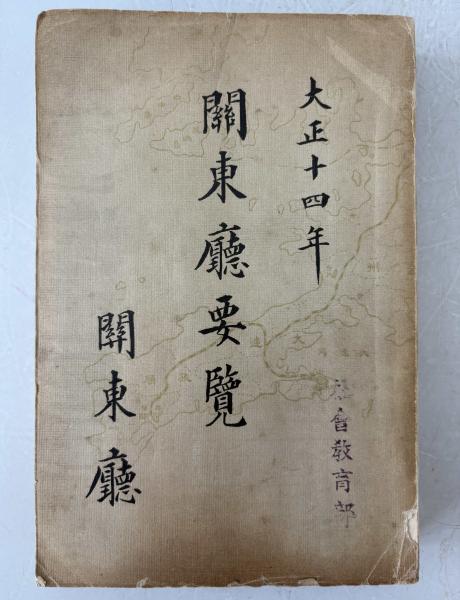 大正十四年
關東廳要覽
關東廳
會教育部
大連